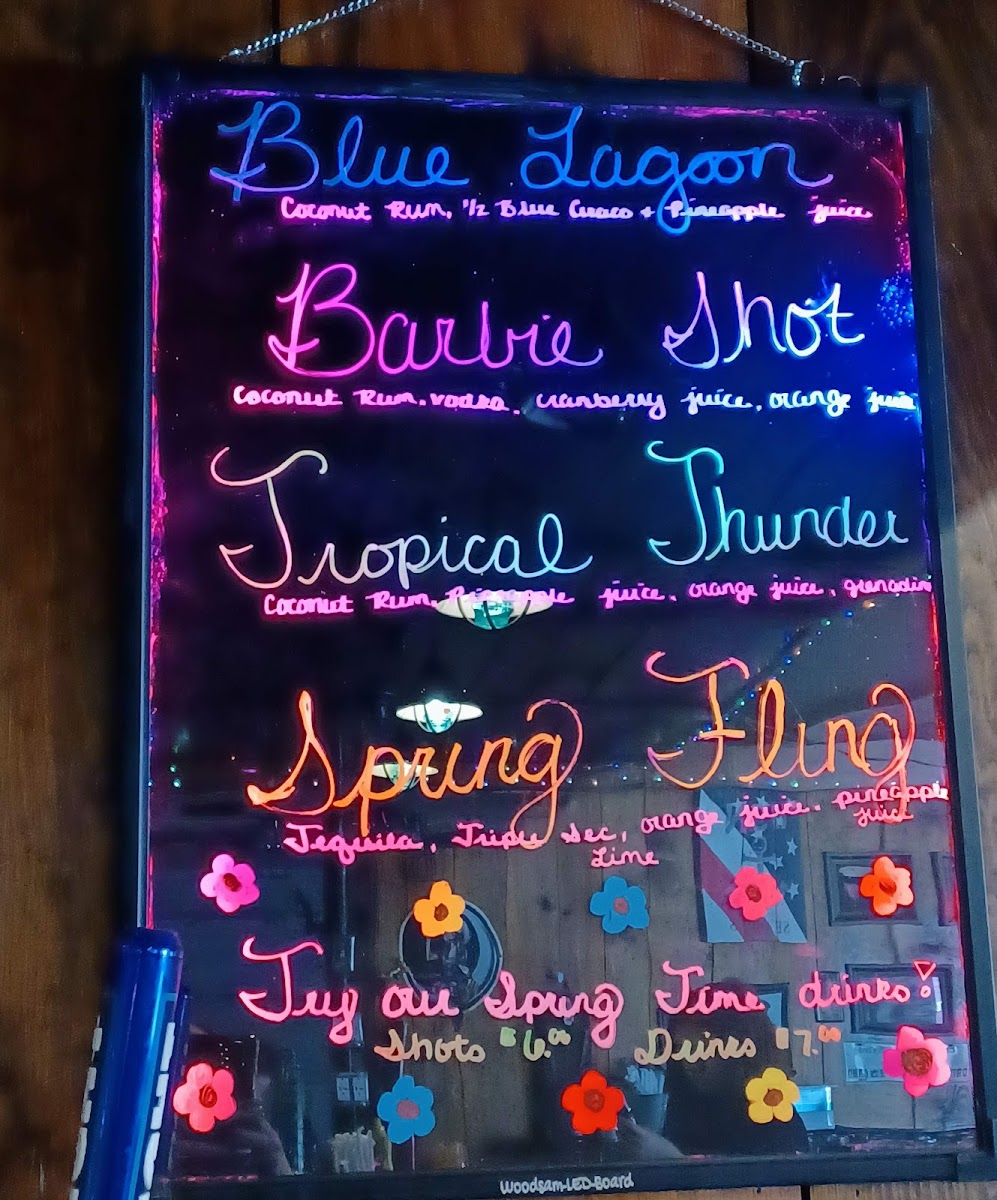 Blue Lagoon
Coconut Rum, 1/2 Blue Curaco + Pineapple juice
Barbie Shot
Coconut Rum, vodka, cranberry juice, orange juice
Tropical Thunder
Coconut Rum, Pineapple juice, orange juice, grenadin
Spring Fling
Tequila, Triple Sec, orange juice, pineapple
juice
Lime
Try our Spring Time drinks!
Shots $6.00 Drinks $7.00
Woodsam-LED-Board